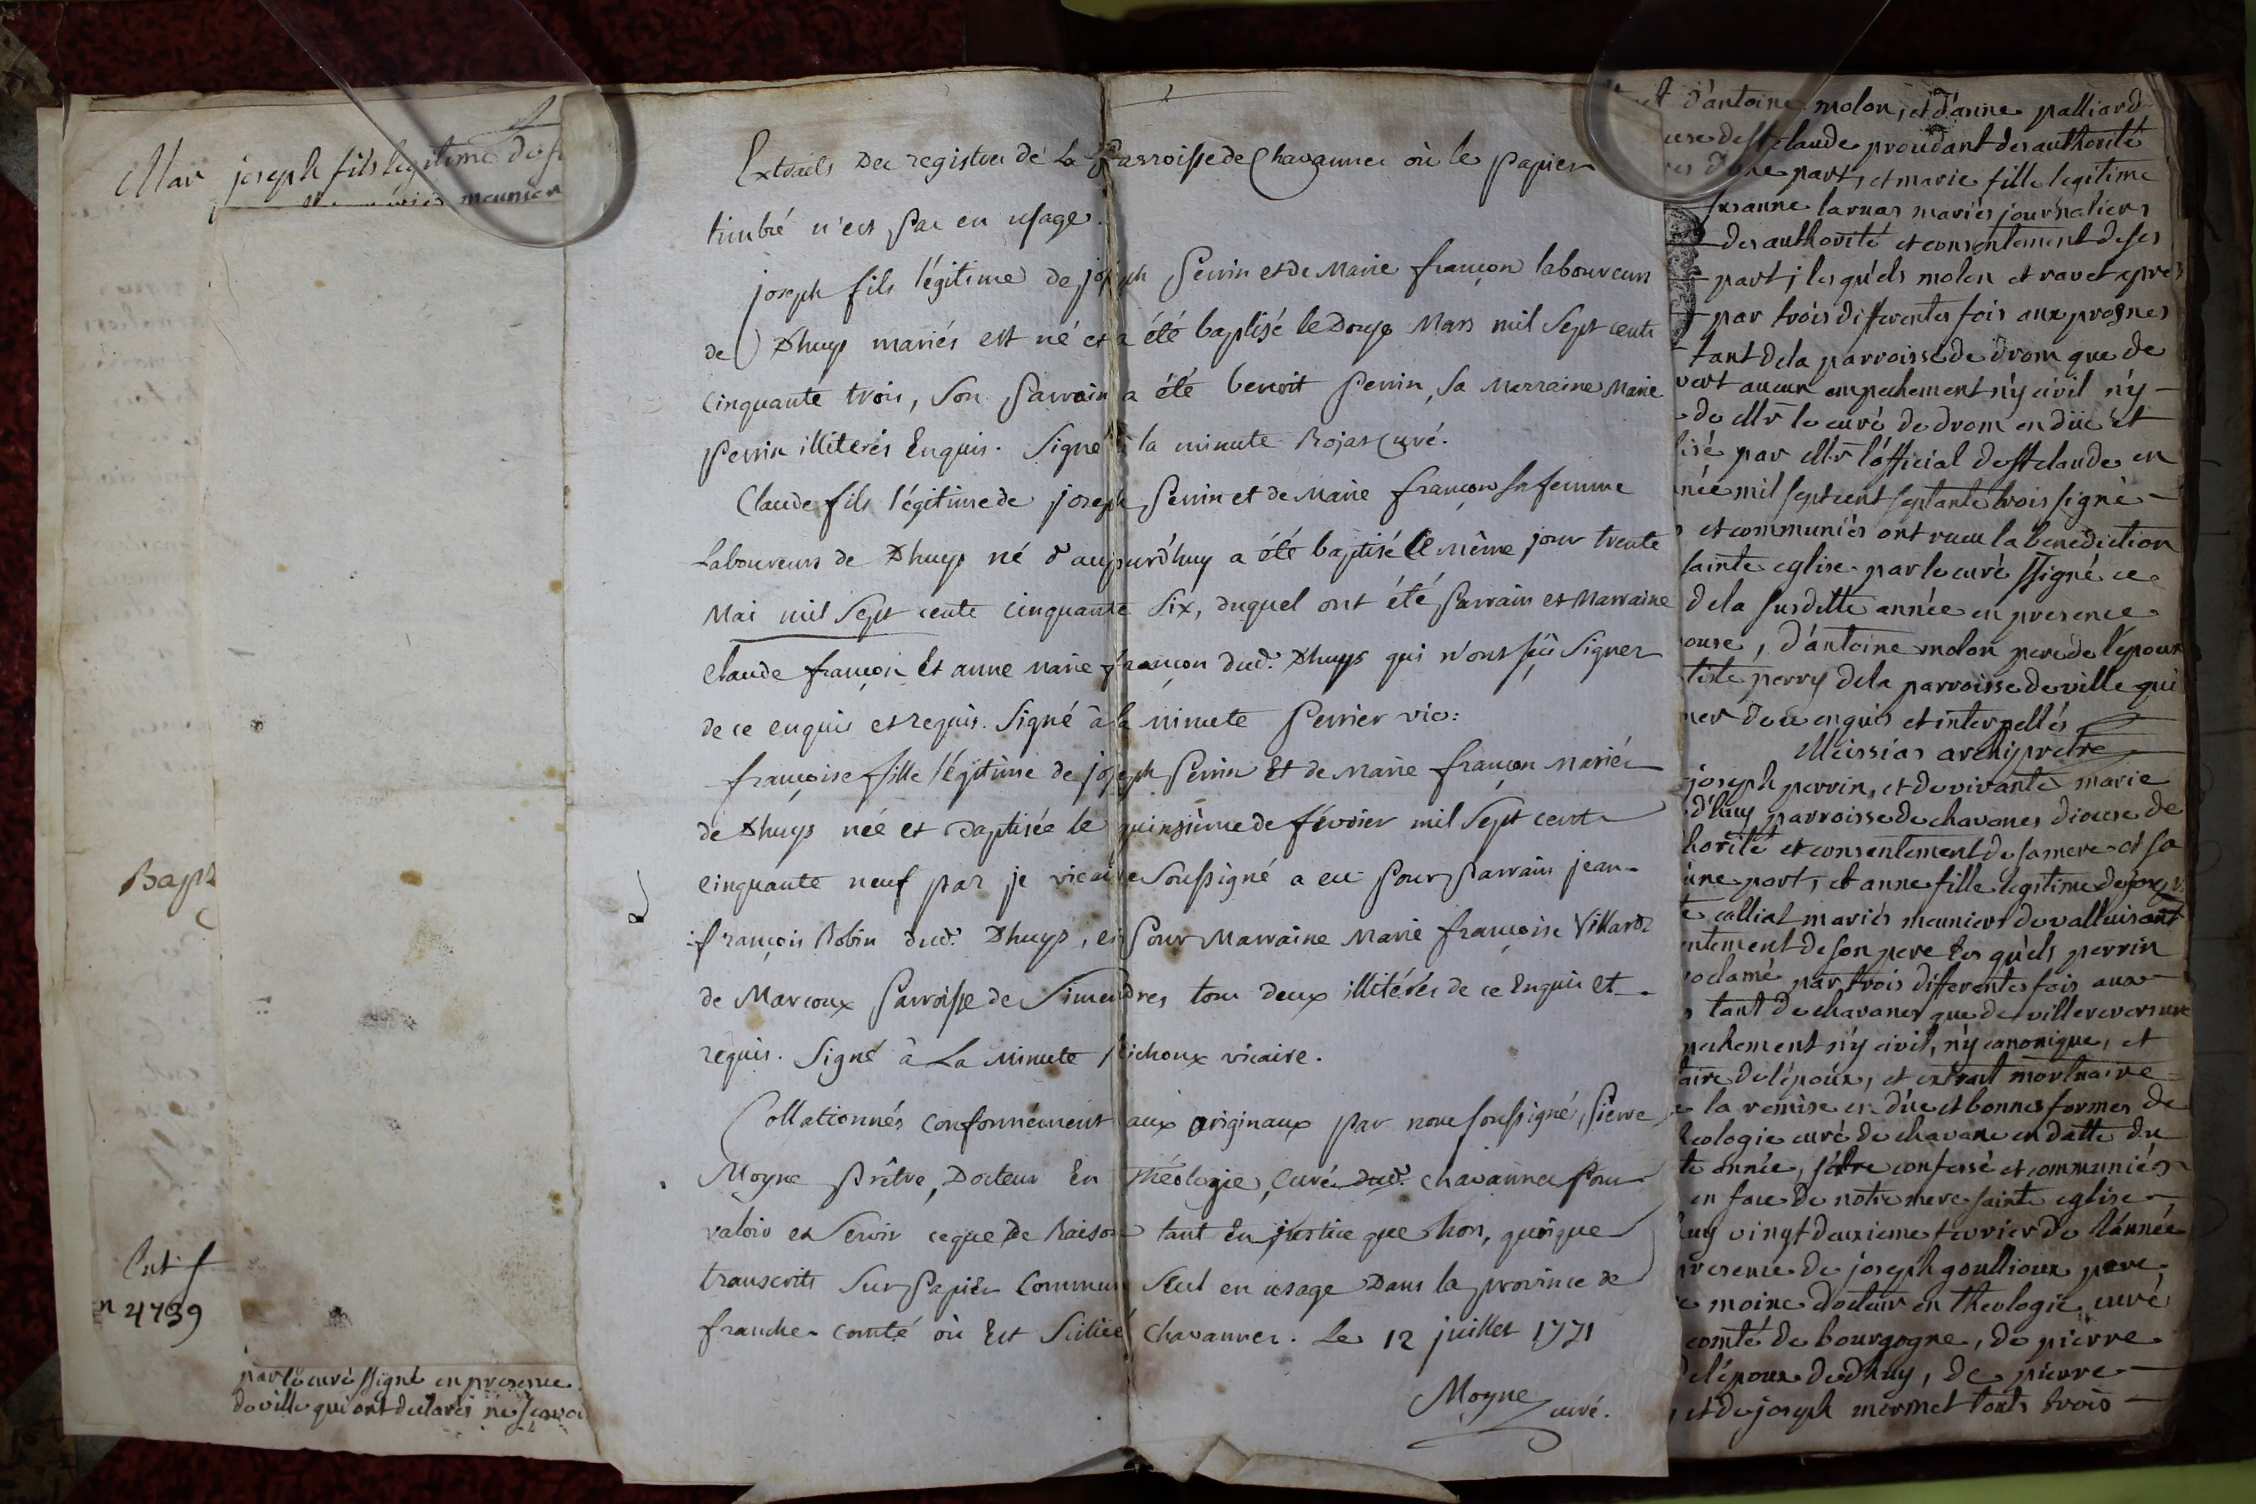 Mar joseph fils legitime de
meunier
Bapt
Cert
n 4739
par le curé ssigné en presence
de ville qui ont declarés ne sçavoir
Extraits Des registres de La Parroisse de Chavannes où le papier
timbré n'est pas en usage.
joseph fils légitime de joseph Perrin et de Marie françon laboureurs
de Dhuys mariés est né et a été baptisé le Douze Mars mil Sept cents
cinquante trois, Son Parrain a été benoit Perrin, Sa Marraine Marie
Perrin illiterés Enquis. Signé à la minute Rojas Curé.
Claude fils légitime de joseph Perrin et de Marie françon Sa femme
Laboureurs de Dhuys né d'aujourd'huy a été baptisé le même jour trente
Mai mil Sept cents cinquante Six, duquel ont été Parrain et Marraine
Claude françon Et anne Marie françon dud. Dhuys qui n'ont sçû Signer
de ce enquis et requis. Signé à la minute Perrier vic:
françoise fille légitime de joseph Perrin Et de Marie françon Mariés
de Dhuys née et Baptisée le quinzième de février mil Sept cents
cinquante neuf par je vicaire Soussigné a eu Pour Parrain jean-
françois Robin dud. Dhuys, et Pour Marraine Marie françoise Villard
de Marcoux Parroisse de Simandres tous deux illitérés de ce Enquis et
requis. Signé à La Minute Pichoux vicaire.
Collationnés Conformément aux originaux par nous soussigné, Pierre
Moyne Prêtre, Docteur En Théologie, Curé dud. Chavannes Pour
valoir et Servir ce que de Raison tant En justice que hors, quoique
transcrits Sur Papier Commun Seul en usage Dans la province de
franche-comté où Est Scitué Chavannes. Le 12 juillet 1771
Moyne curé.
d'antoine molon, et d'anne palliard
de St claude procedant des authorité
d'une part, et marie fille legitime
susanne larnas mariés journaliers
des authorité et consentement de ses
part; lesquels molon et ravet
par trois differentes fois aux prosnes
tant de la parroisse de drom que de
aucun empechement n'y civil n'y
de Mr le curé de drom en düe et
par Mr l'official de St claude en
mil sept cent septante trois signé
et communiés ont recu la benediction
sainte eglise par le curé ssigné ce
de la susditte année en presence
d'antoine molon pere de l'époux
perry de la parroisse de ville qui
de ce enquis et interpellés
Meissias archiprêtre
joseph perrin, et de vivante marie
d'huy parroisse de chavanes diocese de
et consentement de sa mere et sa
une part, et anne fille legitime de
calliat mariés meuniers de valluisant
de son pere lesquels perrin
par trois differentes fois aux
tant de chavanes que de villereversure
n'y civil, n'y canonique, et
de l'époux, et extrait mortuaire
la remise en düe et bonnes formes de
curé de chavane en datte du
année, s'être confessé et communiés
en face de notre mere sainte eglise
vingt deuxieme fevrier de l'année
presence de joseph goullioux pere
moine docteur en theologie curé
comté de bourgogne, de pierre
l'époux de dhuy, de pierre
et de joseph mermet touts trois